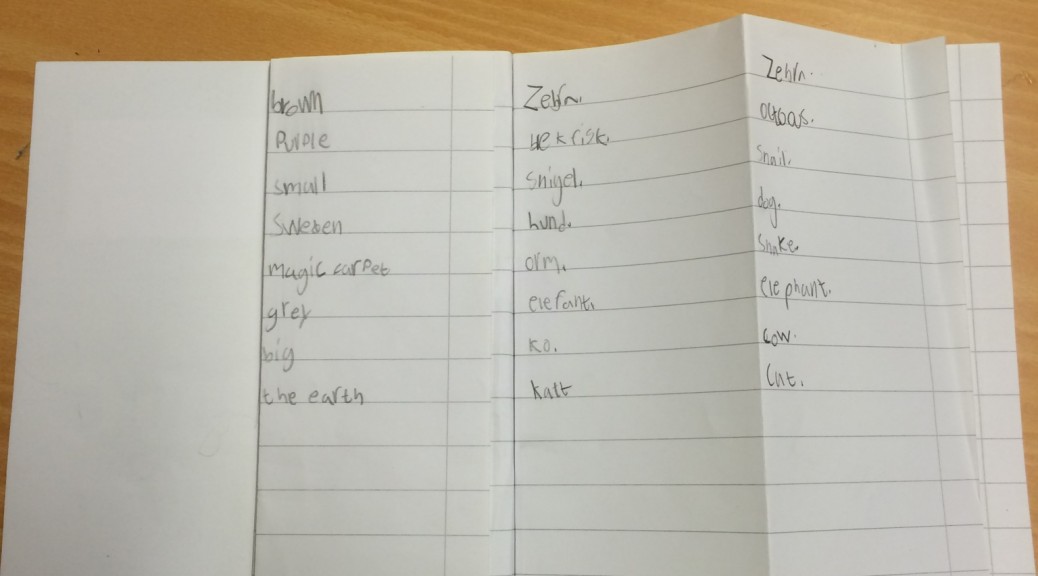 brown
Purple
small
Sweden
magic carpet
grey
big
the earth
Zebra.
Snigel.
hund.
orm.
elefant.
ko.
katt
Zebra.
Snail.
dog.
Snake.
elephant.
cow.
Cat.